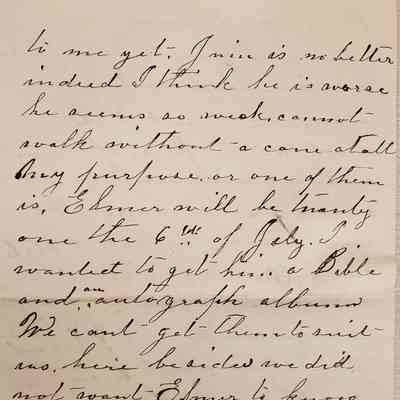 to me yet. Irvin is no better
indeed I think he is worse
he seems so weak, cannot
walk without a cane atall
My purpose, or one of them
is, Elmer will be twenty
one the 6th of July. I
wanted to get him a Bible
and an autograph album
We cant get them to suit
us, here besides we did
not want Elmer to know